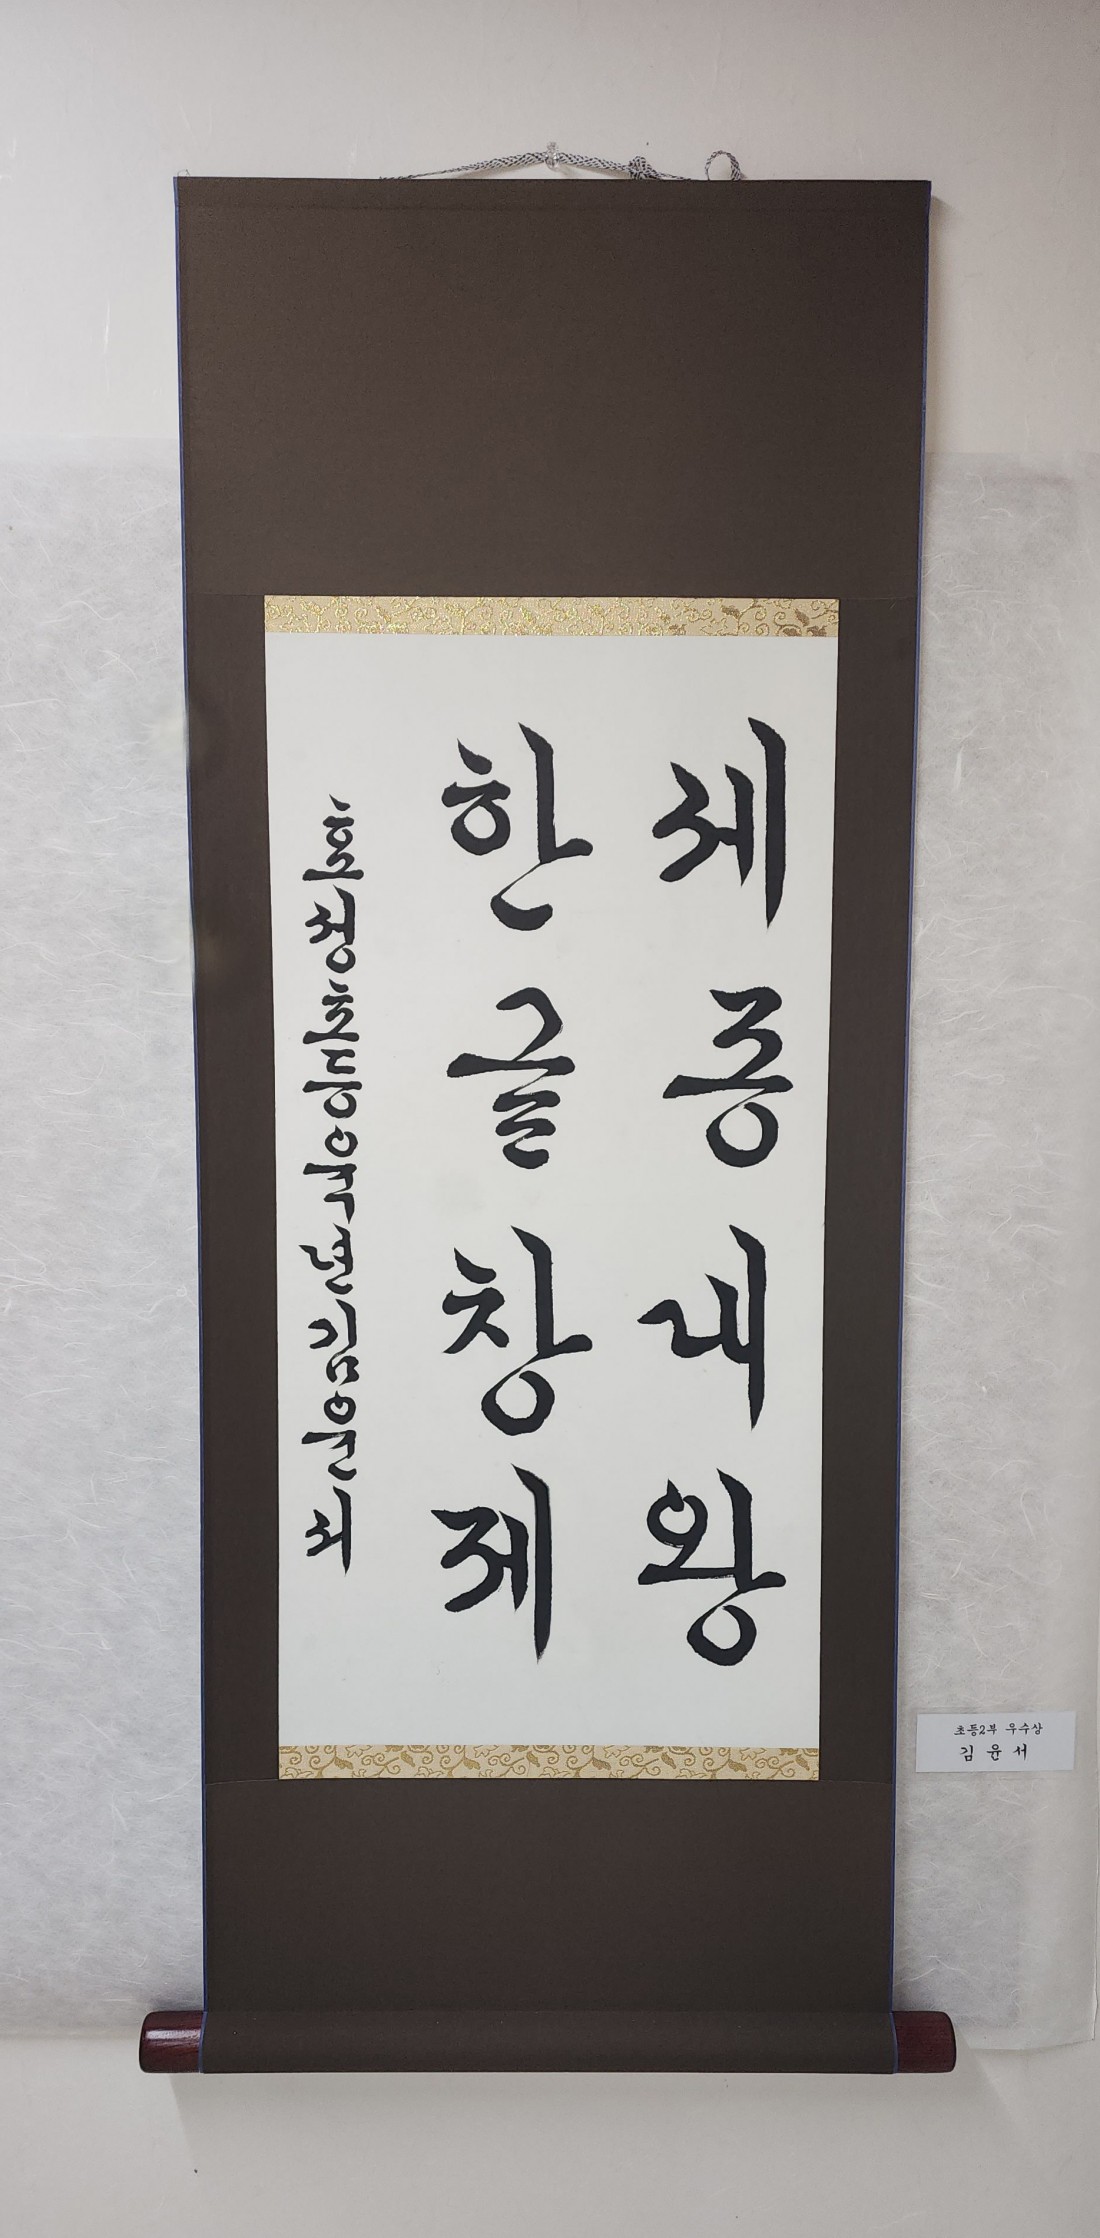 세종대왕
한글창제
효정초등육년김윤서
초등2부 우수상
김 윤 서